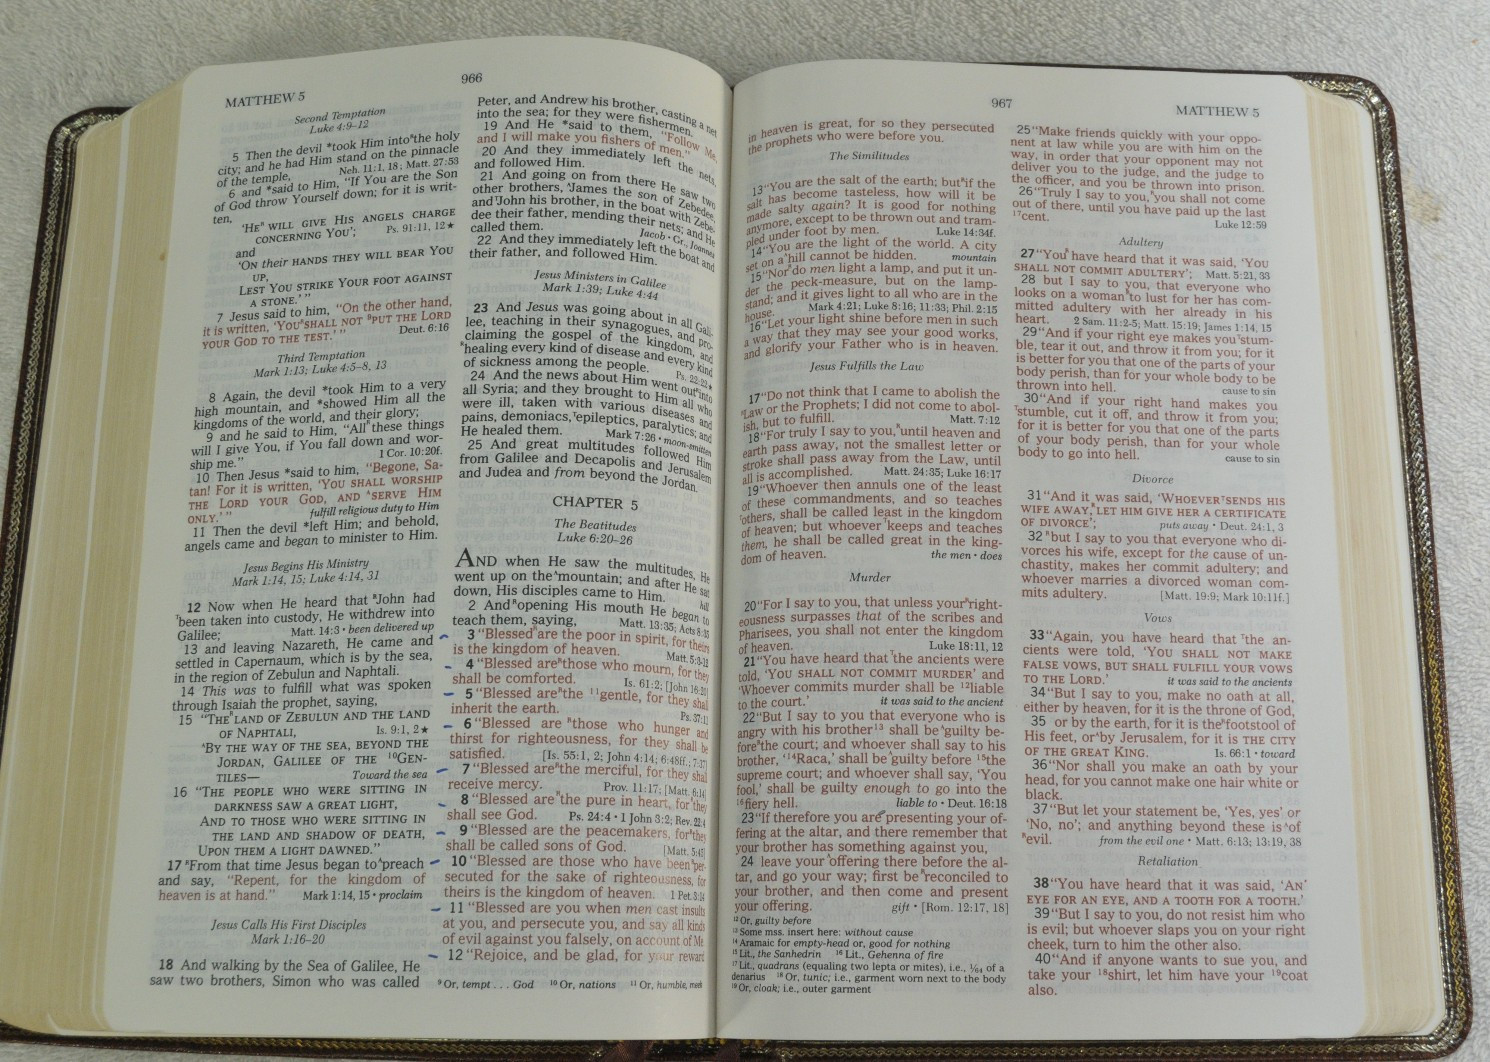 966
MATTHEW 5
Second Temptation
Luke 4:9–12
5 Then the devil *took Him into ᴬthe holy
city; and he had Him stand on the pinnacle
of the temple, Neh. 11:1, 18; Matt. 27:53
6 and *said to Him, “If You are the Son
of God throw Yourself down; for it is writ-
ten,
‘ᴿHE WILL GIVE HIS ANGELS CHARGE
CONCERNING YOU’; Ps. 91:11, 12★
and
‘ON their HANDS THEY WILL BEAR YOU
UP,
LEST YOU STRIKE YOUR FOOT AGAINST
A STONE.’ ”
7 Jesus said to him, “On the other hand,
it is written, ‘YOU ᴿSHALL NOT ᴿPUT THE LORD
YOUR GOD TO THE TEST.’ ” Deut. 6:16
Third Temptation
Mark 1:13; Luke 4:5–8, 13
8 Again, the devil *took Him to a very
high mountain, and *showed Him all the
kingdoms of the world, and their glory;
9 and he said to Him, “All ᴿthese things
will I give You, if You fall down and wor-
ship me.” 1 Cor. 10:20f.
10 Then Jesus *said to him, “Begone, Sa-
tan! For it is written, ‘YOU SHALL WORSHIP
THE LORD YOUR GOD, AND ᴬSERVE HIM
ONLY.’ ” fulfill religious duty to Him
11 Then the devil *left Him; and behold,
angels came and began to minister to Him.
Jesus Begins His Ministry
Mark 1:14, 15; Luke 4:14, 31
12 Now when He heard that ᴿJohn had
ᵀbeen taken into custody, He withdrew into
Galilee; Matt. 14:3 • been delivered up
13 and leaving Nazareth, He came and
settled in Capernaum, which is by the sea,
in the region of Zebulun and Naphtali.
14 This was to fulfill what was spoken
through Isaiah the prophet, saying,
15 “THE ᴿLAND OF ZEBULUN AND THE LAND
OF NAPHTALI, Is. 9:1, 2★
ᴬBY THE WAY OF THE SEA, BEYOND THE
JORDAN, GALILEE OF THE ¹⁰GEN-
TILES— Toward the sea
16 “THE PEOPLE WHO WERE SITTING IN
DARKNESS SAW A GREAT LIGHT,
AND TO THOSE WHO WERE SITTING IN
THE LAND AND SHADOW OF DEATH,
UPON THEM A LIGHT DAWNED.”
17 ᴿFrom that time Jesus began to ᴬpreach
and say, “Repent, for the kingdom of
heaven is at hand.” Mark 1:14, 15 • proclaim
Jesus Calls His First Disciples
Mark 1:16–20
18 And walking by the Sea of Galilee, He
saw two brothers, Simon who was called
Peter, and Andrew his brother, casting a net
into the sea; for they were fishermen.
19 And He *said to them, “Follow Me,
and I will make you fishers of men.”
20 And they immediately left the nets,
and followed Him.
21 And going on from there He saw two
other brothers, ᴬJames the son of Zebedee,
and ᴿJohn his brother, in the boat with Zebe-
dee their father, mending their nets; and He
called them. Jacob • Gr., Joannes
22 And they immediately left the boat and
their father, and followed Him.
Jesus Ministers in Galilee
Mark 1:39; Luke 4:44
23 And Jesus was going about in all Gali-
lee, teaching in their synagogues, and pro-
claiming the gospel of the kingdom, and
ᴿhealing every kind of disease and every kind
of sickness among the people. Ps. 22:23★
24 And the news about Him went out ᴿinto
all Syria; and they brought to Him all who
were ill, taken with various diseases and
pains, demoniacs, ᵀepileptics, paralytics; and
He healed them. Mark 7:26 • moon-smitten
25 And great multitudes followed Him
from Galilee and Decapolis and Jerusalem
and Judea and from beyond the Jordan.
CHAPTER 5
The Beatitudes
Luke 6:20–26
AND when He saw the multitudes, He
went up on the ᴬmountain; and after He sat
down, His disciples came to Him. hill
2 And ᴿopening His mouth He began to
teach them, saying, Matt. 13:35; Acts 8:35
3 “Blessed ᴿare the poor in spirit, for theirs
is the kingdom of heaven. Matt. 5:3-12
4 “Blessed are ᴿthose who mourn, for they
shall be comforted. Is. 61:2; [John 16:20]
5 “Blessed are ᴿthe ¹¹gentle, for they shall
inherit the earth. Ps. 37:11
6 “Blessed are ᴿthose who hunger and
thirst for righteousness, for they shall be
satisfied. [Is. 55:1, 2; John 4:14; 6:48ff.; 7:37]
7 “Blessed are ᴿthe merciful, for they shall
receive mercy. Prov. 11:17; [Matt. 6:14]
8 “Blessed are ᴿthe pure in heart, for ᴿthey
shall see God. Ps. 24:4 • 1 John 3:2; Rev. 22:4
9 “Blessed are the peacemakers, for ᴿthey
shall be called sons of God. [Matt. 5:45]
10 “Blessed are those who have been ᴿper-
secuted for the sake of righteousness, for
theirs is the kingdom of heaven. 1 Pet. 3:14
11 “Blessed are you when men cast insults
at you, and persecute you, and say all kinds
of evil against you falsely, on account of Me
12 “Rejoice, and be glad, for your reward
⁹ Or, tempt . . . God ¹⁰ Or, nations ¹¹ Or, humble, meek
967
MATTHEW 5
in heaven is great, for so they persecuted
the prophets who were before you.
The Similitudes
13 “You are the salt of the earth; but ᴿif the
salt has become tasteless, how will it be
made salty again? It is good for nothing
anymore, except to be thrown out and tram-
pled under foot by men. Luke 14:34f.
14 “You are the light of the world. A city
set on a ᴬhill cannot be hidden. mountain
15 “Nor ᴿdo men light a lamp, and put it un-
der the peck-measure, but on the lamp-
stand; and it gives light to all who are in the
house. Mark 4:21; Luke 8:16; 11:33; Phil. 2:15
16 “Let your light shine before men in such
a way that they may see your good works,
and glorify your Father who is in heaven.
Jesus Fulfills the Law
17 “Do not think that I came to abolish the
ᴿLaw or the Prophets; I did not come to abol-
ish, but to fulfill. Matt. 7:12
18 “For truly I say to you, ᴿuntil heaven and
earth pass away, not the smallest letter or
stroke shall pass away from the Law, until
all is accomplished. Matt. 24:35; Luke 16:17
19 “Whoever then annuls one of the least
of these commandments, and so teaches
ᵀothers, shall be called least in the kingdom
of heaven; but whoever ᵀkeeps and teaches
them, he shall be called great in the king-
dom of heaven. the men • does
Murder
20 “For I say to you, that unless your ᴿright-
eousness surpasses that of the scribes and
Pharisees, you shall not enter the kingdom
of heaven. Luke 18:11, 12
21 “You have heard that ᵀthe ancients were
told, ‘YOU SHALL NOT COMMIT MURDER’ and
‘Whoever commits murder shall be ¹²liable
to the court.’ it was said to the ancient
22 “But I say to you that everyone who is
angry with his brother ¹³ shall be ᴬguilty be-
fore ᴿthe court; and whoever shall say to his
brother, ‘¹⁴Raca,’ shall be guilty before ¹⁵the
supreme court; and whoever shall say, ‘You
fool,’ shall be guilty enough to go into the
¹⁶fiery hell. liable to • Deut. 16:18
23 “If therefore you are presenting your of-
fering at the altar, and there remember that
your brother has something against you,
24 leave your ᴬoffering there before the al-
tar, and go your way; first be ᴿreconciled to
your brother, and then come and present
your offering. gift • [Rom. 12:17, 18]
¹² Or, guilty before
¹³ Some mss. insert here: without cause
¹⁴ Aramaic for empty-head or, good for nothing
¹⁵ Lit., the Sanhedrin ¹⁶ Lit., Gehenna of fire
¹⁷ Lit., quadrans (equaling two lepta or mites), i.e., 1/64 of a
denarius ¹⁸ Or, tunic; i.e., garment worn next to the body
¹⁹ Or, cloak; i.e., outer garment
25 “Make friends quickly with your oppo-
nent at law while you are with him on the
way, in order that your opponent may not
deliver you to the judge, and the judge to
the officer, and you be thrown into prison.
26 “Truly I say to you, ᴿyou shall not come
out of there, until you have paid up the last
¹⁷cent. Luke 12:59
Adultery
27 “You ᴿhave heard that it was said, ‘YOU
SHALL NOT COMMIT ADULTERY’; Matt. 5:21, 33
28 but I say to you, that everyone who
looks on a woman ᴿto lust for her has com-
mitted adultery with her already in his
heart. 2 Sam. 11:2-5; Matt. 15:19; James 1:14, 15
29 “And if your right eye makes you ᵀstum-
ble, tear it out, and throw it from you; for it
is better for you that one of the parts of your
body perish, than for your whole body to be
thrown into hell. cause to sin
30 “And if your right hand makes you
ᵀstumble, cut it off, and throw it from you;
for it is better for you that one of the parts
of your body perish, than for your whole
body to go into hell. cause to sin
Divorce
31 “And it was said, ‘WHOEVER ᵀSENDS HIS
WIFE AWAY, ᴿLET HIM GIVE HER A CERTIFICATE
OF DIVORCE’; puts away • Deut. 24:1, 3
32 ᴿbut I say to you that everyone who di-
vorces his wife, except for the cause of un-
chastity, makes her commit adultery; and
whoever marries a divorced woman com-
mits adultery. [Matt. 19:9; Mark 10:11f.]
Vows
33 “Again, you have heard that ᵀthe an-
cients were told, ‘YOU SHALL NOT MAKE
FALSE VOWS, BUT SHALL FULFILL YOUR VOWS
TO THE LORD.’ it was said to the ancients
34 “But I say to you, make no oath at all,
either by heaven, for it is the throne of God,
35 or by the earth, for it is the ᴿfootstool of
His feet, or ᴬby Jerusalem, for it is THE CITY
OF THE GREAT KING. Is. 66:1 • toward
36 “Nor shall you make an oath by your
head, for you cannot make one hair white or
black.
37 “But let your statement be, ‘Yes, yes’ or
‘No, no’; and anything beyond these is ᴬof
ᴿevil. from the evil one • Matt. 6:13; 13:19, 38
Retaliation
38 “You have heard that it was said, ‘AN
EYE FOR AN EYE, AND A TOOTH FOR A TOOTH.’
39 “But I say to you, do not resist him who
is evil; but whoever slaps you on your right
cheek, turn to him the other also.
40 “And if anyone wants to sue you, and
take your ¹⁸shirt, let him have your ¹⁹coat
also.